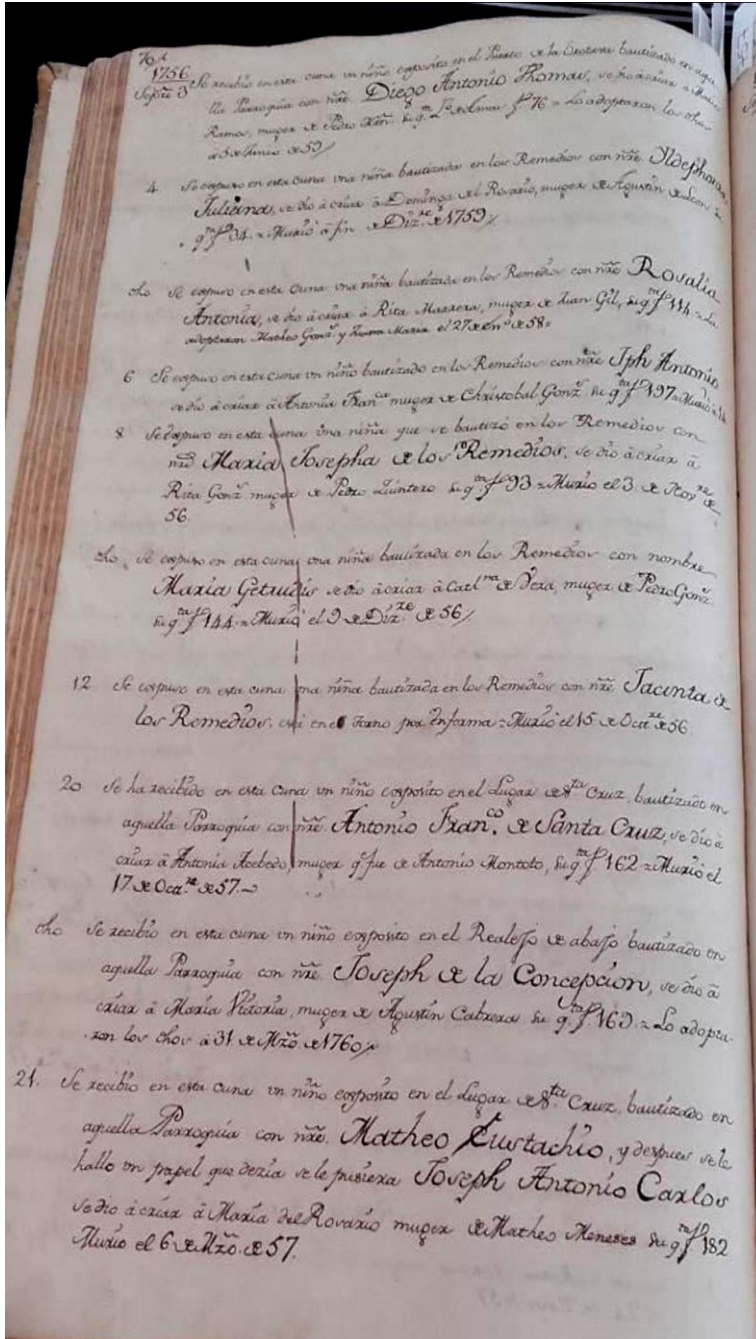 1756
Sepre 3 Se recibio en esta cuna un niño exposito en el Puerto de la Orotava bautizado en aque
lla Parroquia con nre. Diego Antonio Thomas, se dio à criar à Maria
Ramos, muger de Pedro su qta fo 76 = Lo adoptaron los dhos
à 5 de Junio de 59
4. Se expuso en esta cuna una niña bautizada en los Remedios con nre. Yldephonsa
Juliana, se dio à criar à Dominga del Rosario, muger de Agustin de Leon su
qta fo 94. = Murio à fin de Dizre. de 1759
dho Se expuso en esta cuna una niña bautizada en los Remedios con nre Rosalia
Antonia, se dio à criar à Rita Marrera, muger de Juan Gil, su qta fo 114 = La
adoptaron Matheo Gonz. y Juana Maria el 27 de Eno de 58 =
6 Se expuso en esta cuna un niño bautizado en los Remedios con nre Jph Antonio
se dio à criar à Antonia Franca muger de Christobal Gonz. su qta fo 197 = Murio
8 Se expuso en esta cuna una niña que se bautizó en los Remedios con
nre Maria Josepha de los Remedios, se dio à criar à
Rita Gonz. muger de Pedro Quintero su qta fo 93 = Murio el 3 de Novre de
56.
dho, Se expuso en esta cuna una niña bautizada en los Remedios con nombre
Maria Getrudis se dio à criar à Catna de Vera, muger de Pedro Gonz.
su qta fo 144. = Murio el 9 de Dizre de 56
12 Se expuso en esta cuna una niña bautizada en los Remedios con nre. Jacinta de
los Remedios, está en el torno por enferma = Murio el 15 de Octre de 56
20 Se ha recibido en esta cuna un niño exposito en el Lugar de Sta Cruz, bautizado en
aquella Parroquia con nre Antonio Franco. de Santa Cruz, se dio à
criar à Antonia Acebedo, muger q fue de Antonio Montoto, su qta fo 162 = Murio el
17 de Octre de 57.
dho Se recibio en esta cuna un niño expósito en el Realejo de abajo bautizado en
aquella Parroquia con nre. Joseph de la Concepcion, se dio à
criar à Maria Vitoria, muger de Agustin Cabrera su qta fo 169 = Lo adopta-
ron los dhos à 31 de Mzo de 1760
21. Se recibio en esta cuna un niño expósito en el Lugar de Sta Cruz, bautizado en
aquella Parroquia con nre. Matheo Eustachio, y despues se le
hallo un papel que dezia se le pusiera Joseph Antonio Carlos
se dio à criar à Maria del Rosario muger de Matheo Meneses su qta fo 182
Murio el 6 de Mzo. de 57.